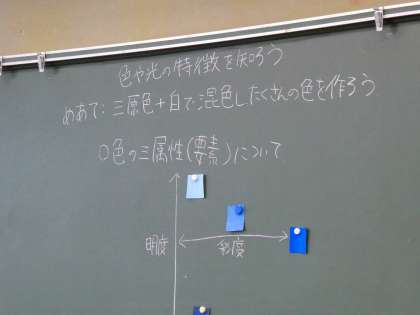 色や光の特徴を知ろう
めあて:三原色+白で混色したくさんの色を作ろう
○色の三属性(要素)について
明度
彩度